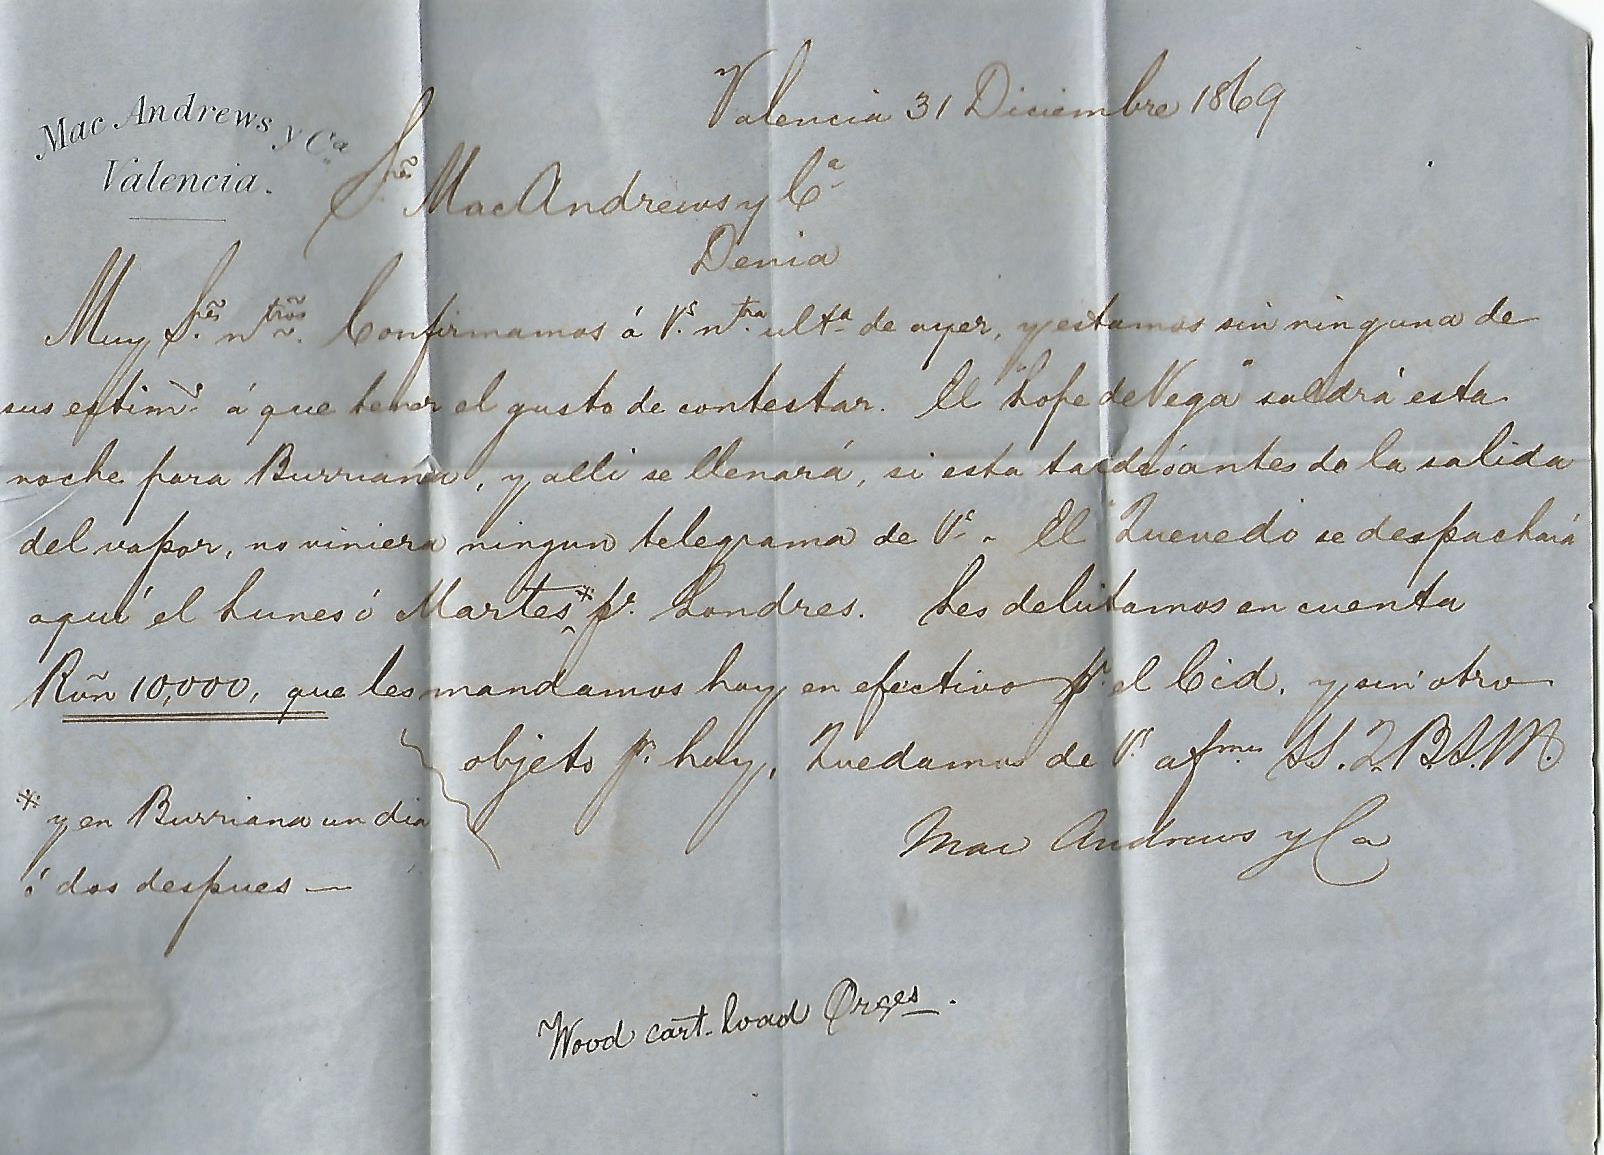 Mac Andrews y Cª
Valencia.
Valencia 31 Diciembre 1869
Sres. Mac Andrews y Cª
Denia
Muy Sres. ntros. Confirmamos á Vs. ntra ultª de ayer, y estamos sin ninguna de
sus estims. á que tener el gusto de contestar. El "Lope de Vega" saldrá esta
noche para Burriana, y alli se llenará, si esta tarde ó antes de la salida
del vapor, no viniera ningun telegrama de Vs. - El Quevedo se despachará
aquí el Lunes ó Martes * pr. Londres. Les debitamos en cuenta
Rvñ 10,000, que les mandamos hoy en efectivo pr. el Cid, y sin otro
objeto pr. hoy, Quedamos de Vs. afmos SS. Q.B.S.M.
Mac Andrews y Ca
* y en Burriana un dia
ó dos despues —
Wood cart. load Orges.